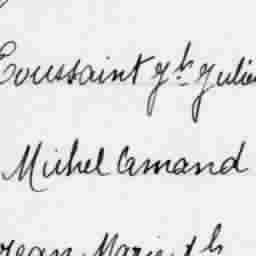 Toussaint Jh Julie
Michel Amand
Jean Marie Jh